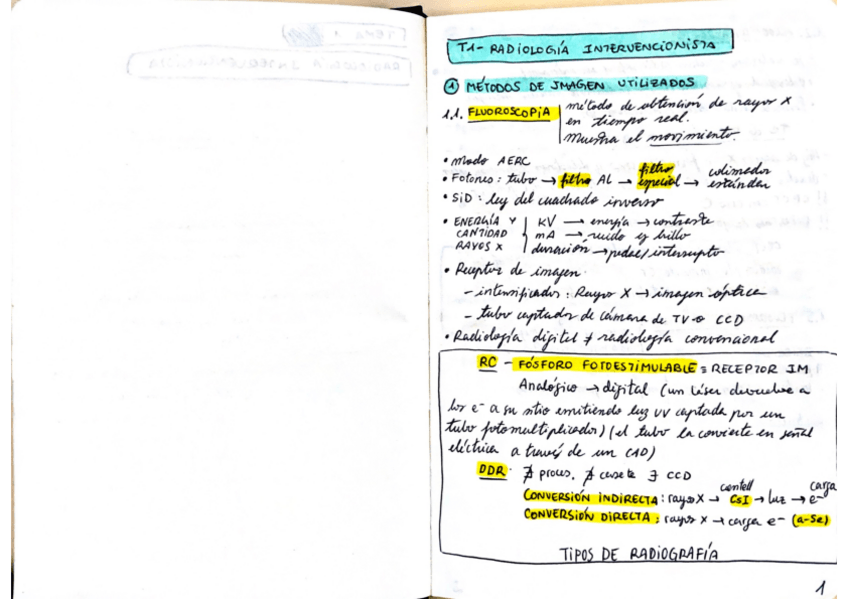 T1- RADIOLOGÍA INTERVENCIONISTA
① MÉTODOS DE IMAGEN UTILIZADOS
1.1. FLUOROSCOPIA | método de obtención de rayos X
en tiempo real.
Muestra el movimiento.
• Modo AERC
• Fotones: tubo → filtro AL → filtro especial → colimador estándar
• SiD: ley del cuadrado inverso
• ENERGÍA Y CANTIDAD RAYOS X
KV → energía → contraste
mA → ruido y brillo
duración → pedal/interruptor
• Receptor de imagen:
- intensificador: Rayos X → imagen óptica
- tubo captador de cámara de TV o CCD
• Radiología digital ≠ radiología convencional
RC - FÓSFORO FOTOESTIMULABLE = RECEPTOR IM
Analógico → digital (un láser devuelve a
los e- a su sitio emitiendo luz UV captada por un
tubo fotomultiplicador) (el tubo la convierte en señal
eléctrica a través de un CAD)
DDR: ∄ proces, ∄ casete ∃ CCD
CONVERSIÓN INDIRECTA: rayos X → centell CsI → luz → carga e-
CONVERSIÓN DIRECTA: rayos X → carga e- (a-Se)
TIPOS DE RADIOGRAFÍA
1